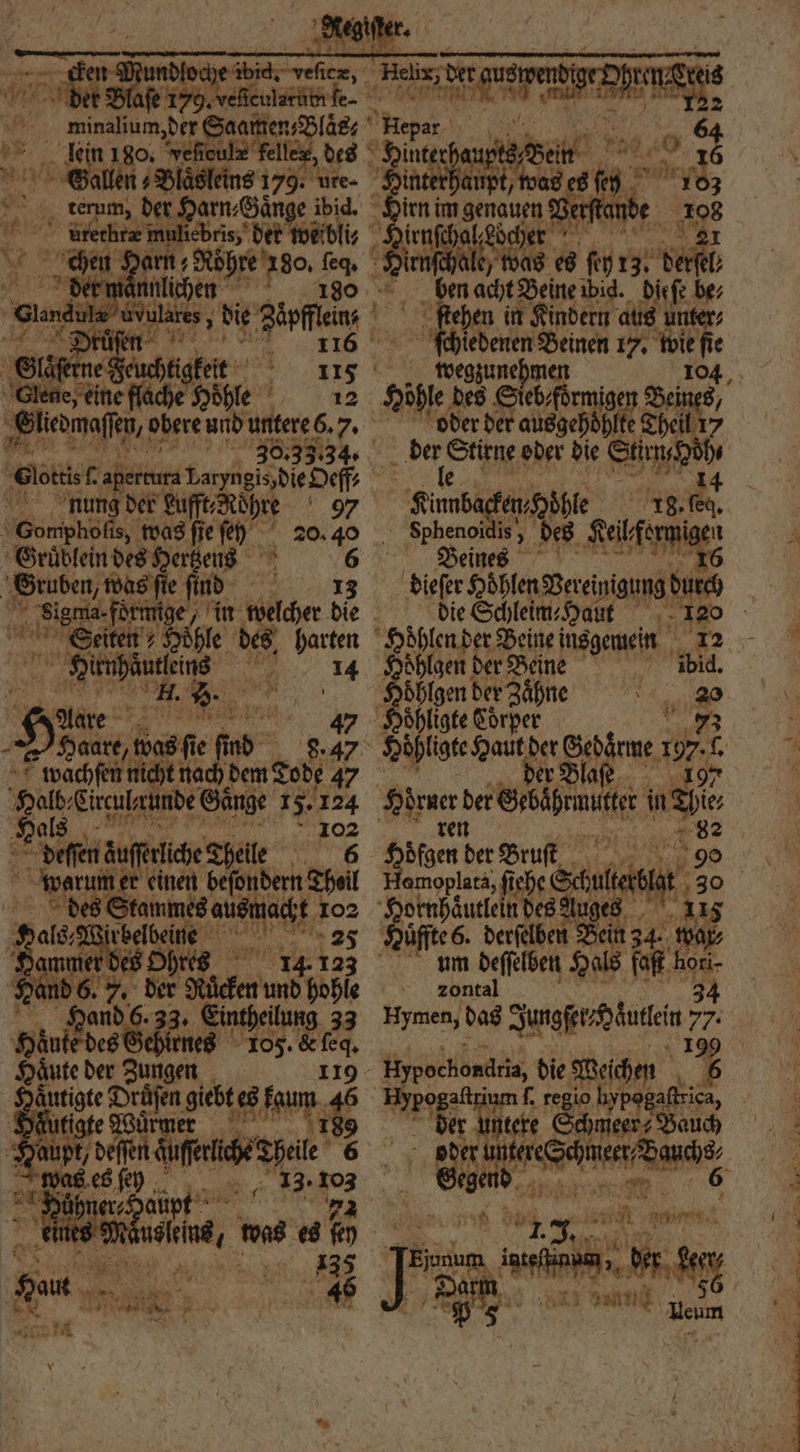 Regiſter.
cken Mundloche ibid. veſicæ,
der Blaſe 179. veſicularum ſe-
minalium, der Saamen-Blås-
lein 180. veſiculæ felleæ, des
Gallen-Blåsleins 179. ure-
terum, der Harn-Gånge ibid.
urethræ muliebris, der weibli-
chen Harn-Rôhre 180. ſeq.
der månnlichen 180
Glandulæ uvulares, die Zåpfflein-
Drůſen 116
Glåſerne Feuchtigkeit 115
Glene, eine flache Hôhle 12
Gliedmaſſen, obere und untere 6. 7.
30. 33. 34.
Glottis ſ. apertura Laryngis, die Oeff-
nung der Lufft-Rôhre 97
Gomphoſis, was ſie ſey 20. 40
Grůblein des Hertzens 6
Gruben, was ſie ſind 13
Sigma-fôrmige, in welcher die
Seiten-Hôhle des harten
Hirnhåutleins 14
H. H.
HAare 47
Haare, was ſie ſind 8. 47
wachſen nicht nach dem Tode 47
Halb-Circul-runde Gånge 15. 124
Hals 102
deſſen åuſſerliche Theile 6
warum er einen beſondern Theil
des Stammes ausmacht 102
Hals-Wirbelbeine 25
Hammer des Ohres 14. 123
Hand 6. 7. der Růcken und hohle
Hand 6. 33. Eintheilung 33
Håute des Gehirnes 105. & ſeq.
Håute der Zungen 119
Håutigte Drůſen giebt es kaum 46
Håutigte Wůrmer 189
Haupt, deſſen åuſſerliche Theile 6
was es ſey 13. 103
Hůhner-Haupt 72
eines Måusleins, was es ſey
135
Haut 46
Helix, der auswendige Ohren-Creis
122
Hepar 64
Hinterhaupts-Bein 16
Hinterhaupt, was es ſey 103
Hirn im genauen Verſtande 108
Hirnſchal-Lôcher 21
Hirnſchale, was es ſey 13. derſel-
ben acht Beine ibid. dieſe be-
ſtehen in Kindern aus unter-
ſchiedenen Beinen 17. wie ſie
wegzunehmen 104
Hôhle des Sieb-fôrmigen Beines,
oder der ausgehôhlte Theil 17
der Stirne oder die Stirn-Hôh-
le 14
Kinnbacken-Hôhle 18. ſeq.
Sphenoidis, des Keil-fôrmigen
Beines 16
dieſer Hôhlen Vereinigung durch
die Schleim-Haut 120
Hôhlen der Beine insgemein 12
Hôhlgen der Beine ibid.
Hôhlgen der Zåhne 20
Hôhligte Côrper 73
Hôhligte Haut der Gedårme 197. ſ.
der Blaſe 197
Hôrner der Gebåhrmutter in Thie-
ren 82
Hôfgen der Bruſt 90
Homoplata, ſiehe Schulterblat 30
Hornhåutlein des Auges 115
Hůffte 6. derſelben Bein 34. war-
um deſſelben Hals faſt hori-
zontal 34
Hymen, das Jungfer-Håutlein 77.
199
Hypochondria, die Weichen 6
Hypogaſtrium ſ. regio hypogaſtrica,
der untere Schmeer-Bauch
oder untere Schmeer-Bauchs-
Gegend 6
I. J.
JEjunum inteſtinum, der Leer-
Darm 56
P 5 Ileum